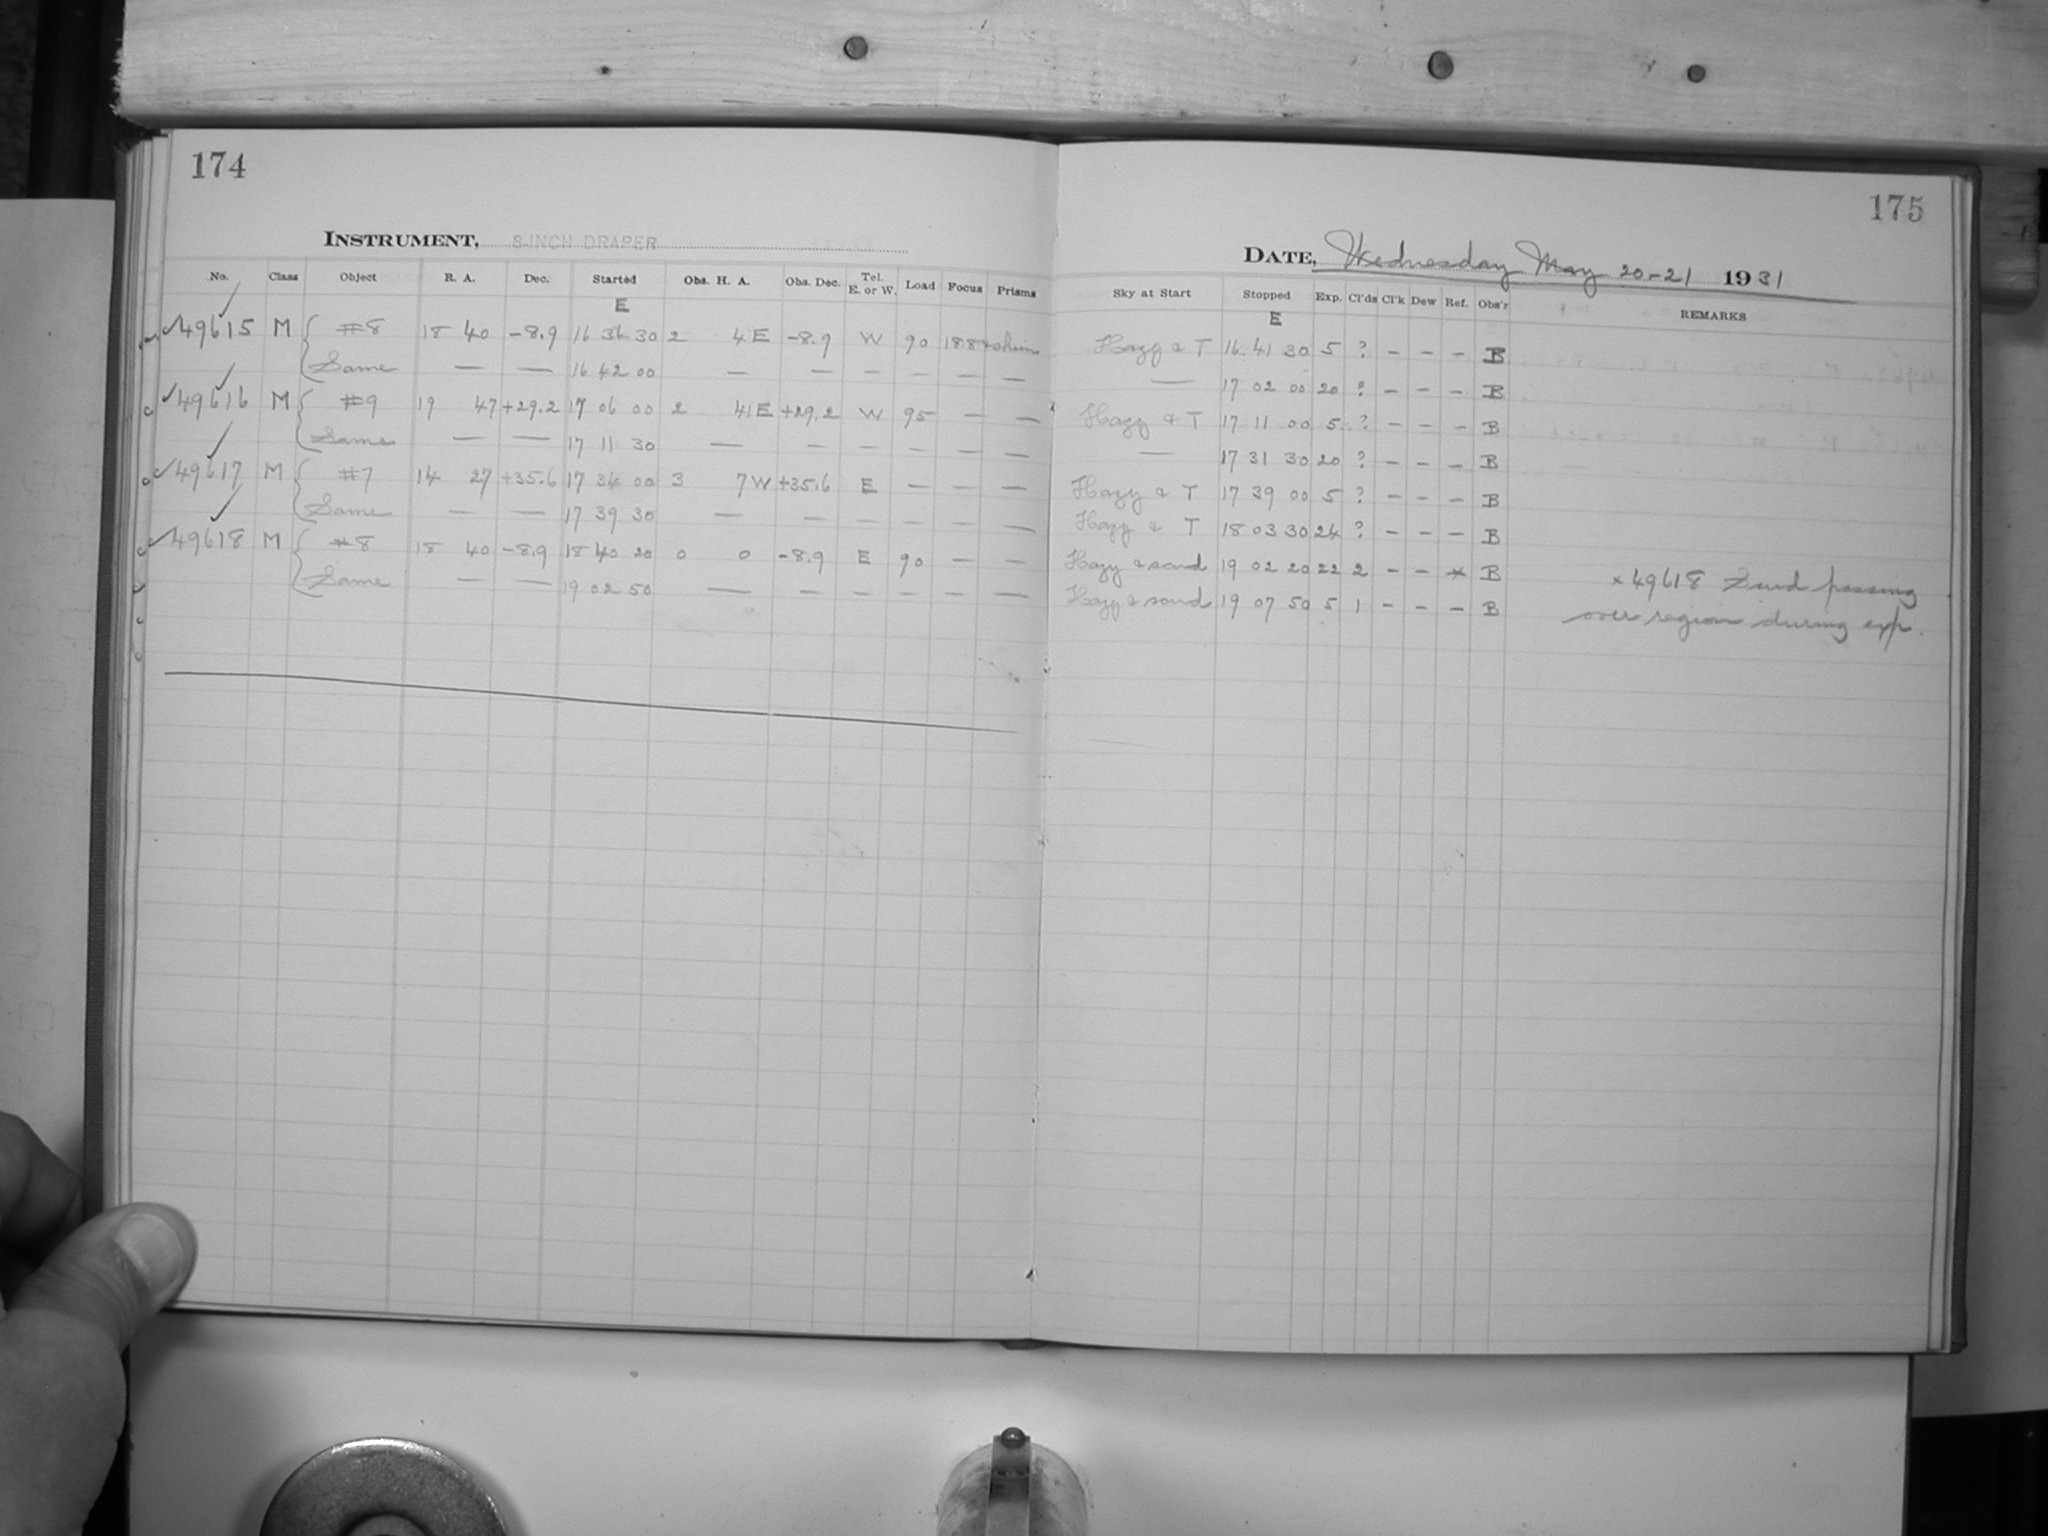 174
INSTRUMENT, 8-INCH DRAPER
No. Class Object R. A. Dec. Started Obs. H. A. Obs. Dec. Tel. E. or W. Load Focus Prisms
E
49615 M #8 18 40 -8.9 16 36 30 2 4E -8.9 W 90 18.8
Same — — 16 42 00 — — — — — —
49616 M #9 19 47 +29.2 17 06 00 2 41E +29.2 W 95 — —
Same — — 17 11 30 — — — — — —
49617 M #7 14 27 +35.6 17 34 00 3 7W +35.6 E — — —
Same — — 17 39 30 — — — — — —
49618 M #8 18 40 -8.9 18 40 20 0 0 -8.9 E 90 — —
Same — — 19 02 50 — — — — — —
175
DATE, Wednesday May 20-21 1931
Sky at Start Stopped Exp. Cl'ds Cl'k Dew Ref. Obs'r REMARKS
E
Hazy & T 16 41 30 5 ? - - - B
— 17 02 00 20 ? - - - B
Hazy & T 17 11 00 5 ? - - - B
— 17 31 30 20 ? - - - B
Hazy & T 17 39 00 5 ? - - - B
Hazy & T 18 03 30 24 ? - - - B
Hazy & sand 19 02 20 22 2 - - * B
Hazy & sand 19 07 50 5 1 - - - B
x 49618 Sand passing
over region during exp.